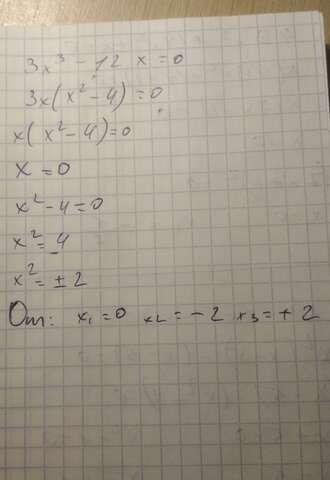 3x³ - 12 x = 0
3x(x² - 4) = 0
x(x² - 4) = 0
x = 0
x² - 4 = 0
x² = 4
x² = ± 2
От: x₁ = 0 x₂ = - 2 x₃ = + 2